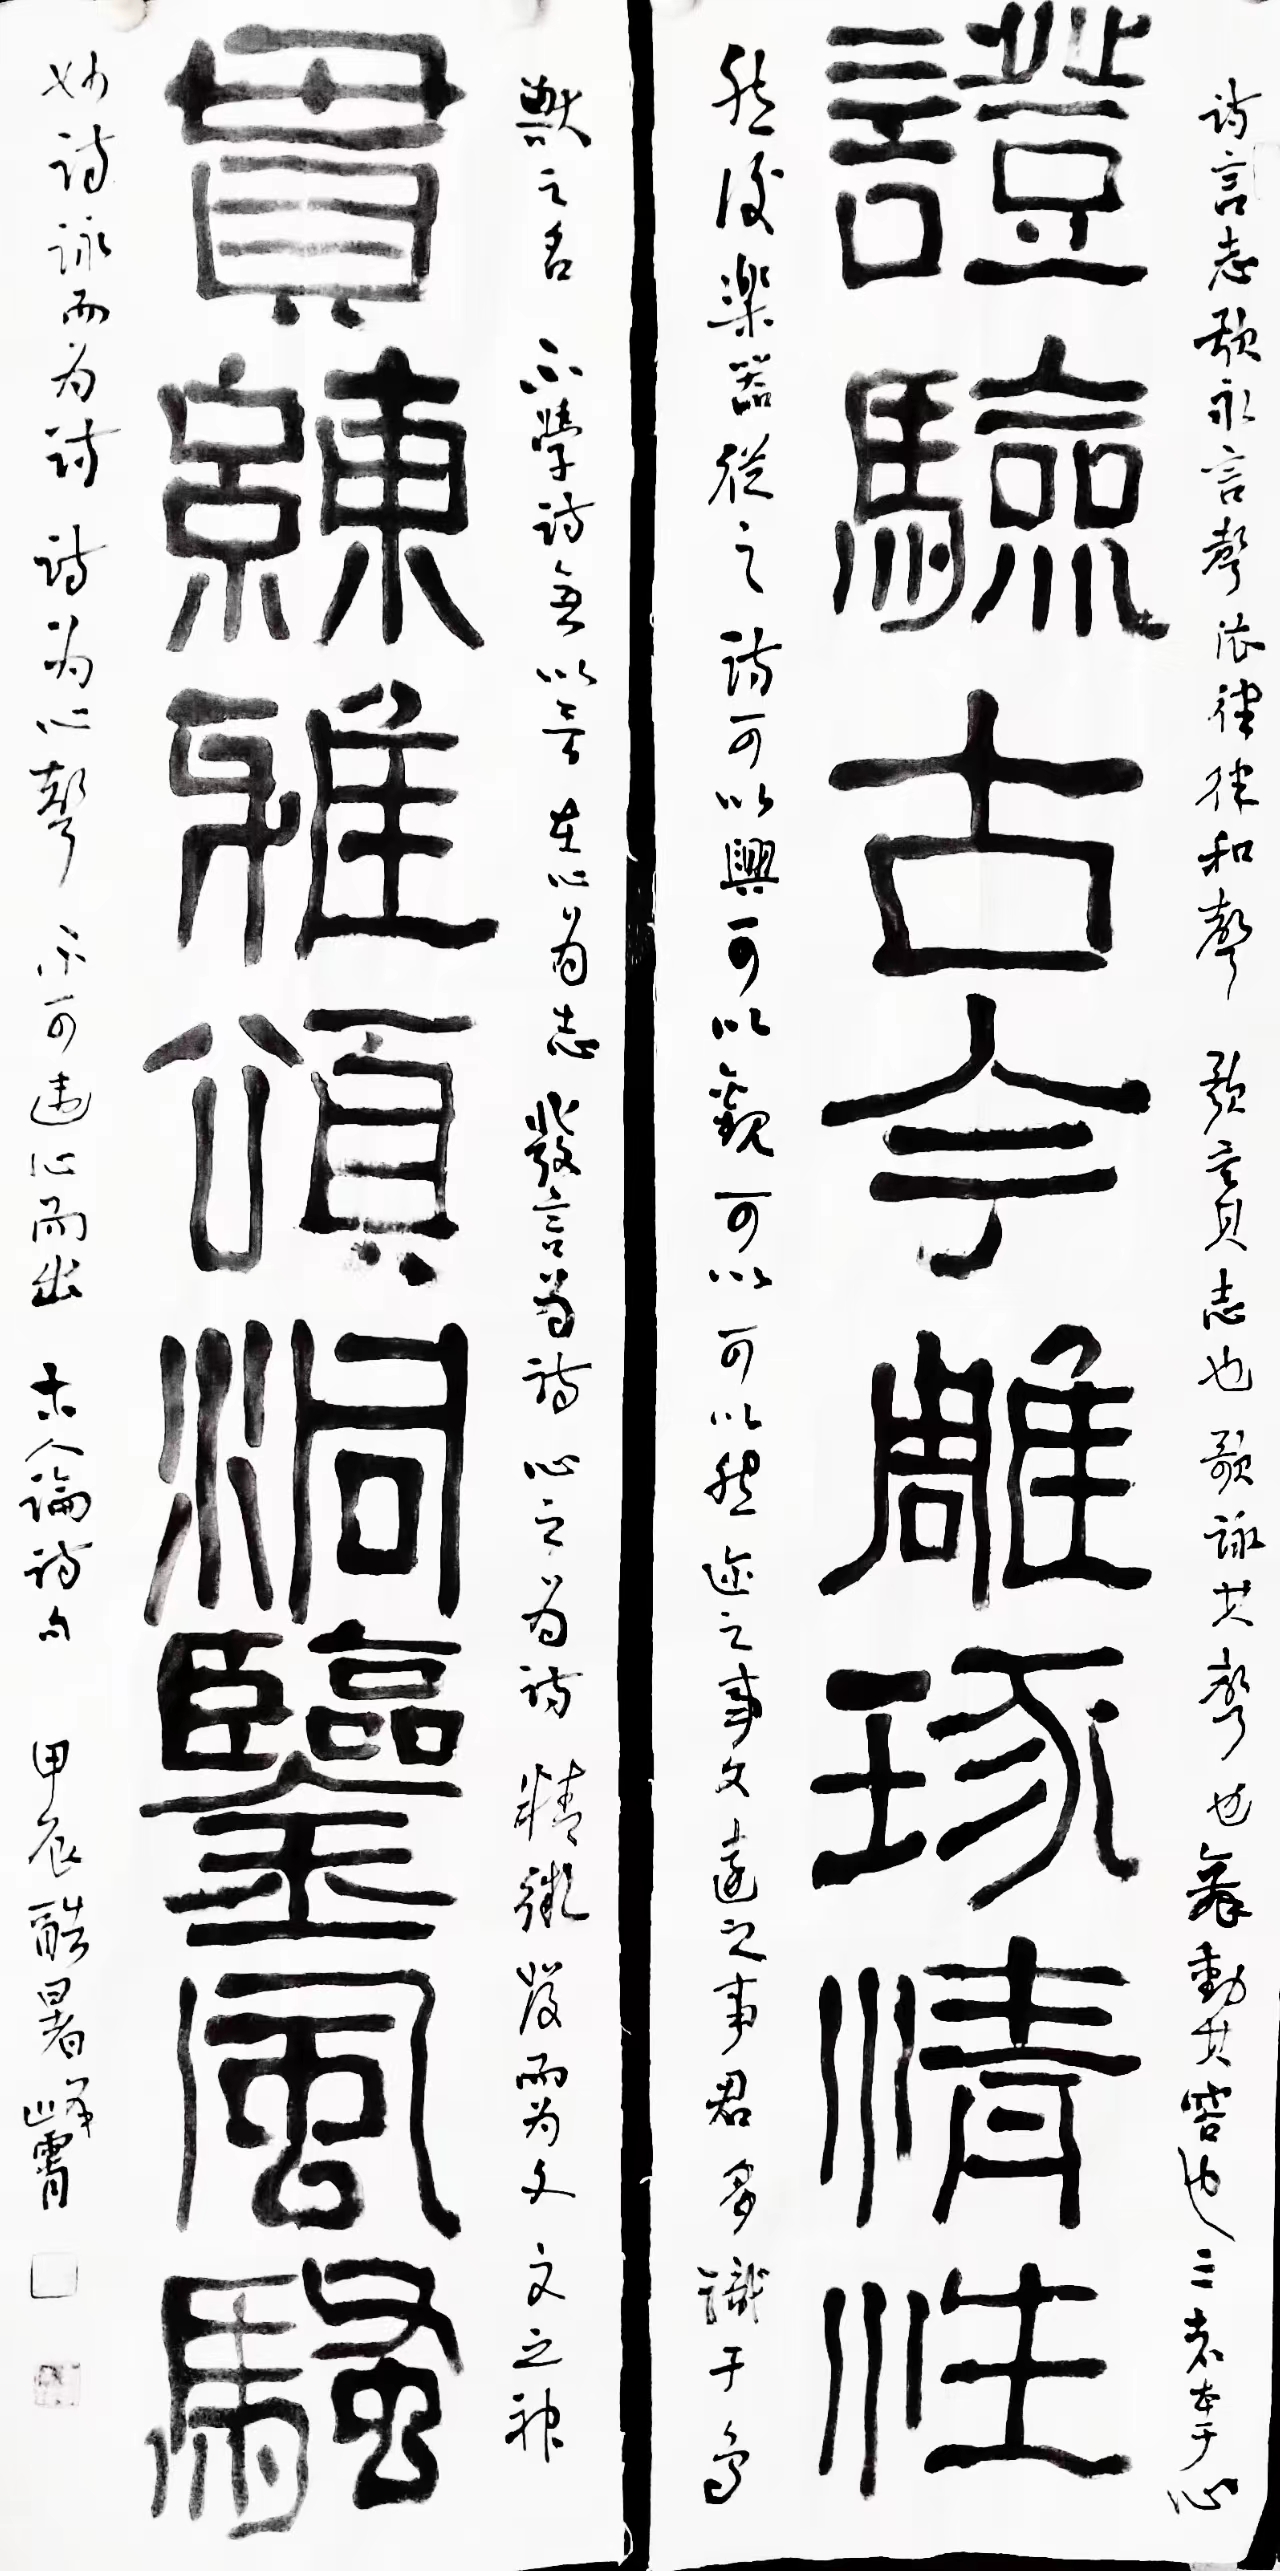 诗言志歌永言聲依律律和聲 歌言其志也 歌詠其聲也舞動其容也三者本于心
證驗古今雕琢情性
然後樂器從之 诗可以興可以觀可以可以怨 迩之事父遠之事君多識于鳥
獸之名 不學诗無以言 在心为志 發言为诗 心之为诗 精微發而为文 文之神
貫練雅頌洞鑒風騷
妙诗詠而为诗 诗为心聲 不可违心而出 人論诗句 甲辰酷暑峰霄